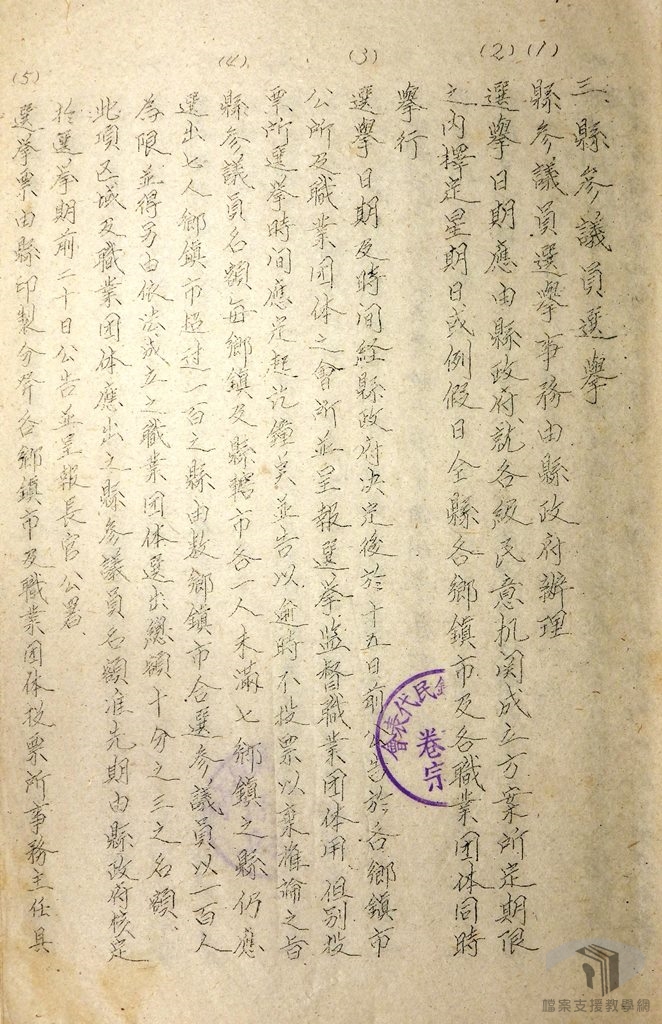 三、縣參議員選舉
(1)
縣參議員選舉事務由縣政府辦理
(2)
選舉日期應由縣政府就各級民意机関成立方案所定期限
之内擇定星期日或例假日全縣各鄉鎮市及各職業団体同時
舉行
(3)
選舉日期及時间経縣政府决定後於十五日前公告於各鄉鎮市
公所及職業団体之會所並呈報選举监督職業団体用但别投
票所選举時间應定起訖鐘奌並告以逾時不投票以棄權論之旨
(4)
縣參議員名額每鄉鎮及縣轄市各一人未滿七鄉鎮之縣仍應
選出七人鄉鎮市超过一百之縣由数鄉鎮市合選參議員以一百人
為限並得另由依法成立之職業団体選出總額十分之三之名額、
此項区域及職業団体應出之縣參議員名額准先期由縣政府核定
於選举期前二十日公告並呈報長官公署、
(5)
選挙票由縣印製分發各鄉鎮市及職業団体投票所事務主任具
鎮民代表會
卷宗
檔案支援教學網